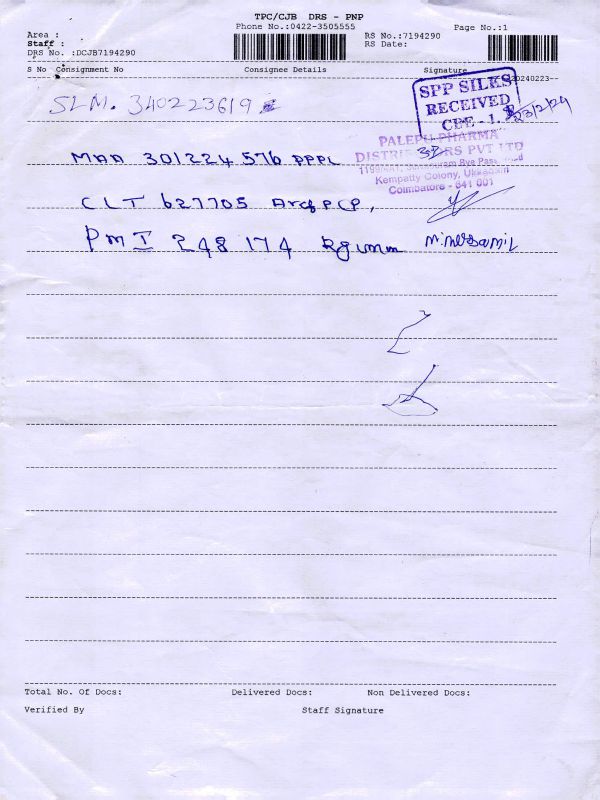 TPC/CJB DRS - PNP
Phone No.:0422-3505555
Page No.:1
Area :
Staff :
DRS No. :DCJB7194290
RS No.:7194290
RS Date:
S No Consignment No Consignee Details Signature
20240223--
SLM. 340223619
SPP SILKS
RECEIVED
CBE - 1.
23/2/24
MAA 301224576 PPPL
PALEPU PHARMA
DISTRI RS PVT LTD
Kempatty Colony, Ukkadam
Coimbatore - 641 001
CLT 627705
PMI 248174
Total No. Of Docs: Delivered Docs: Non Delivered Docs:
Verified By Staff Signature